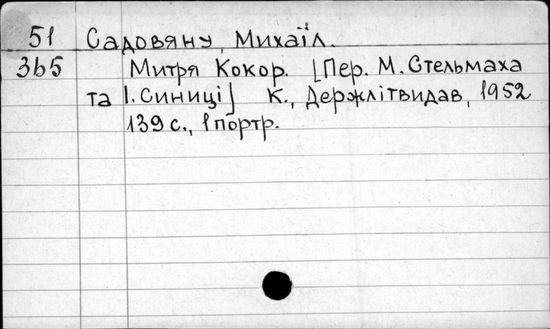 51 Садовяну, Михаїл.
3b5 Митря Кокор. [Пер. М. Стельмаха
та І. Синиці] К., Держлітвидав, 1952
139 с., 1 портр.